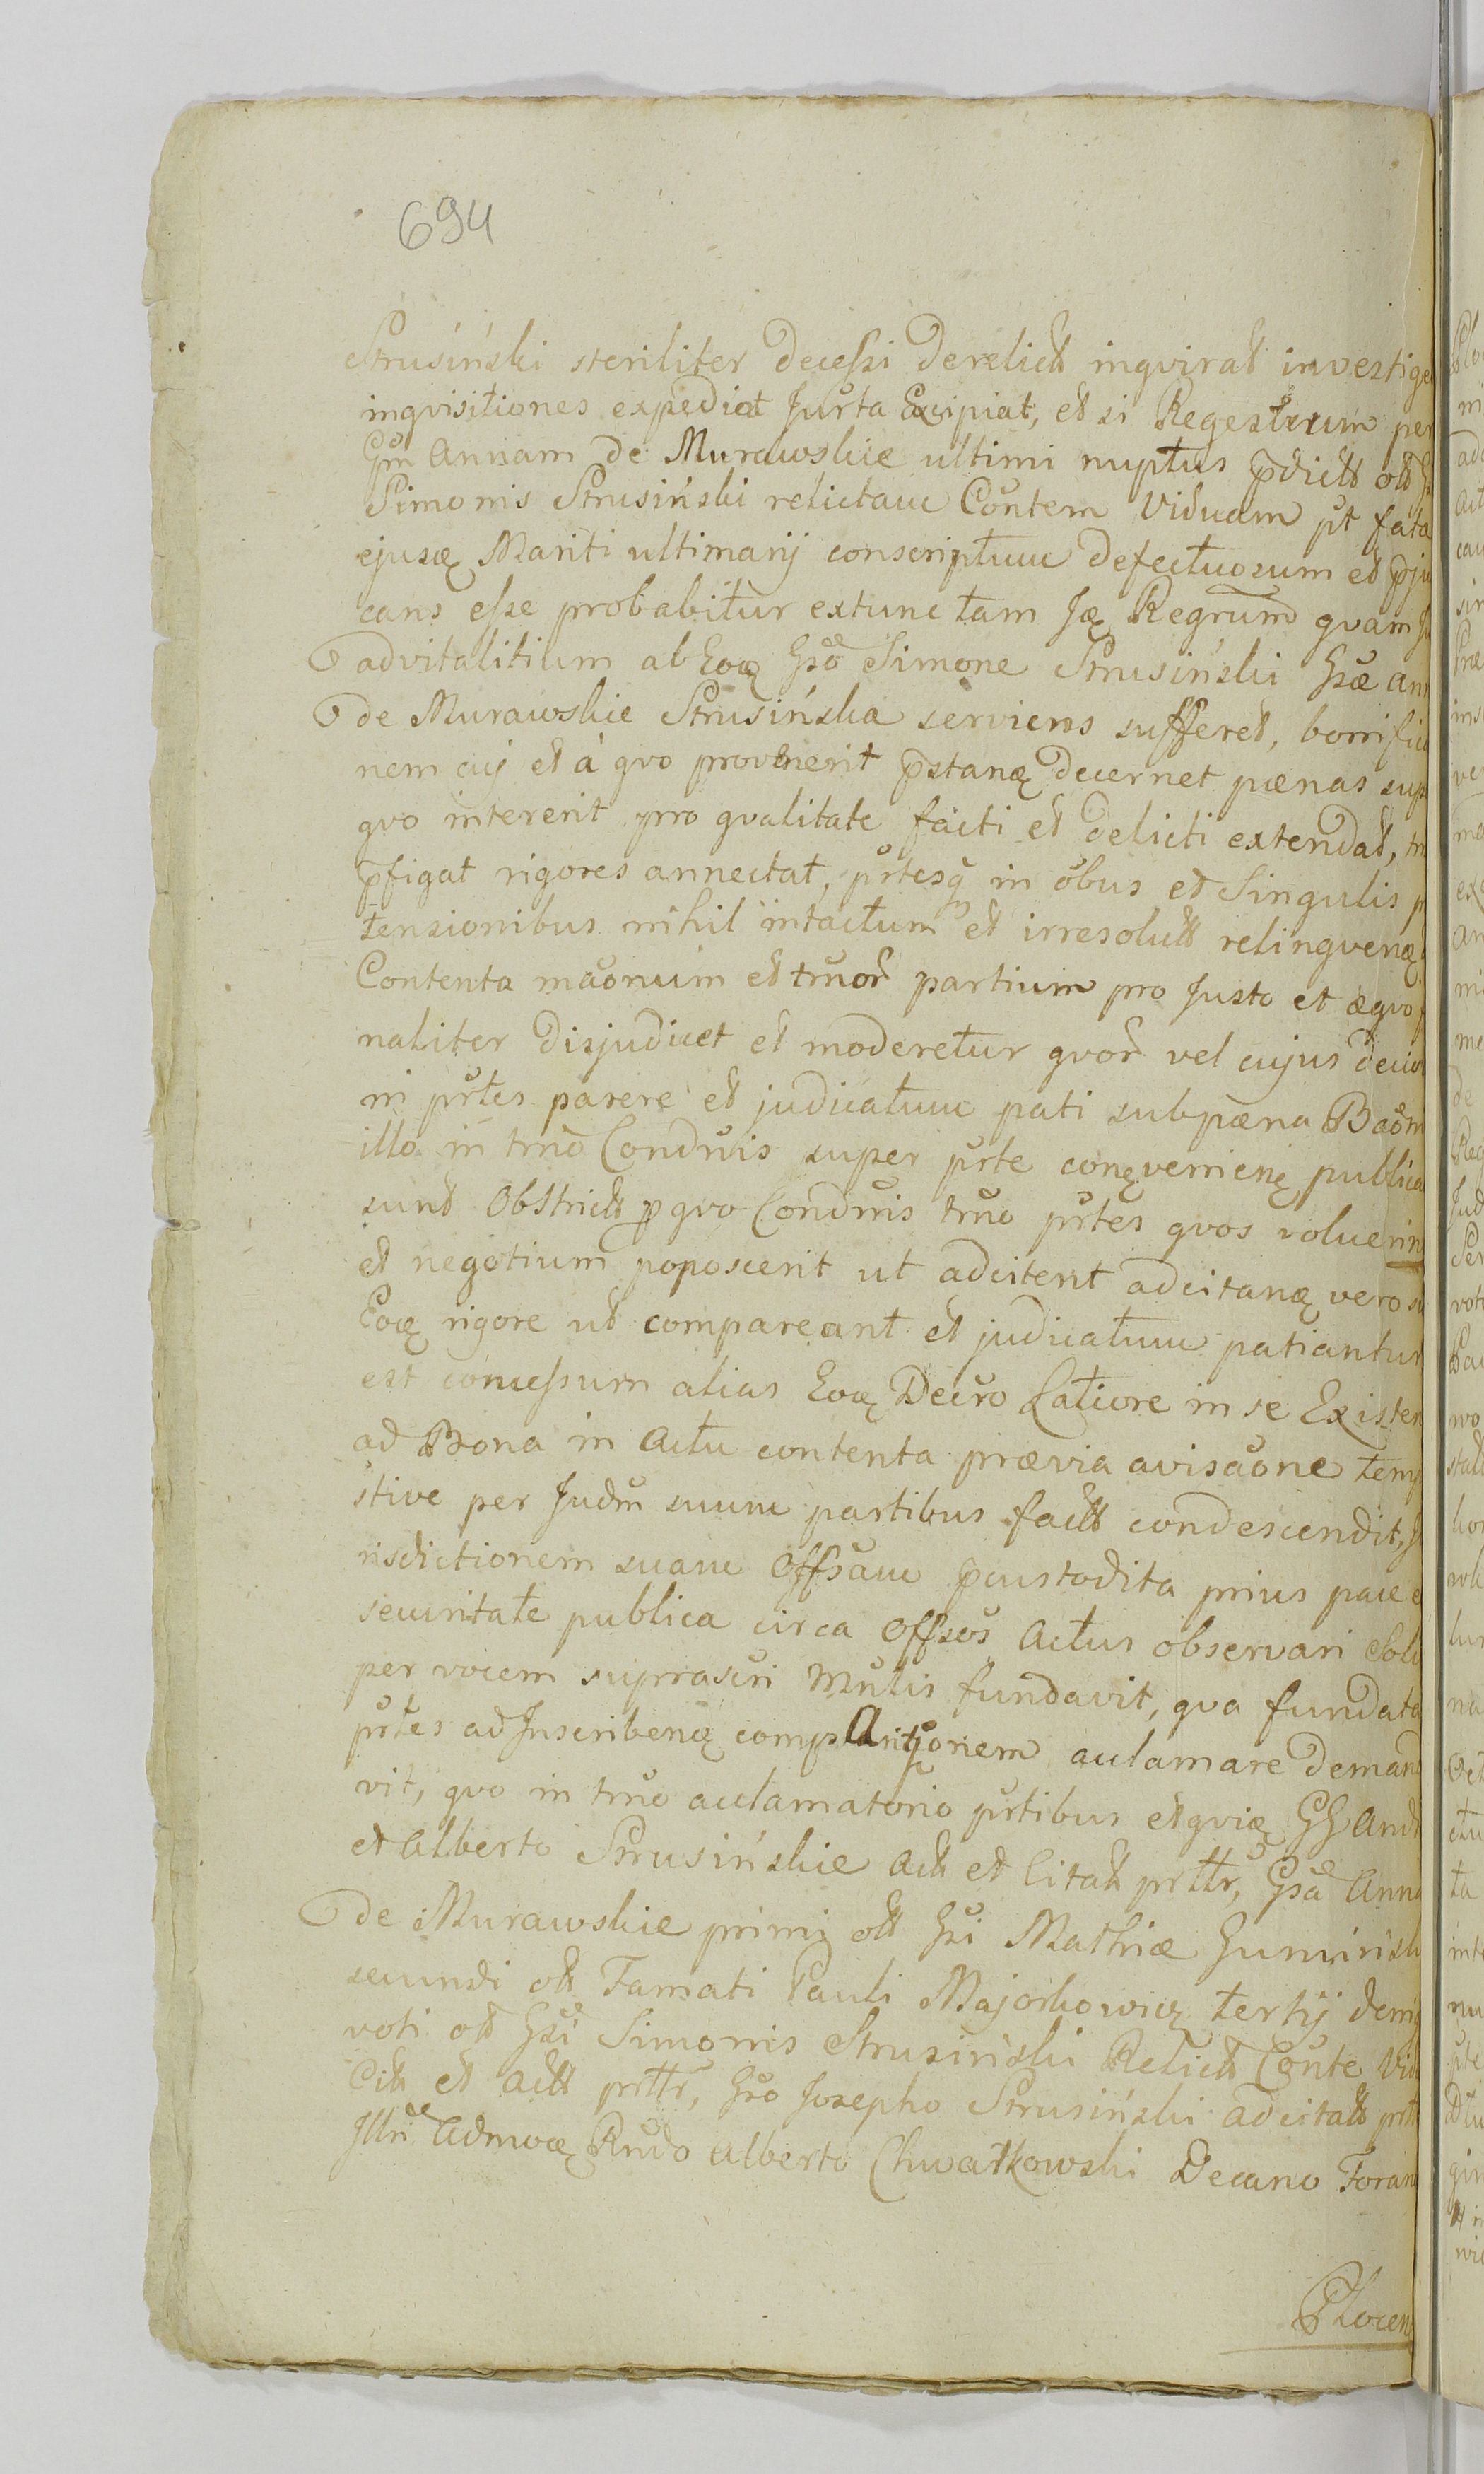 694
Strusinski steriliter decessi derelictt inqvirat investige
inqvisitiones expediat Jurta Excipiat, et si Regestrum per
Gsm Annam de Murawskie ultimi nuptus pdictt ott
Simonis Strusiński relictam Contem Viduam pt fata
ejusq Mariti ultimarij conscriptum defectuosum et pju
cans esse probabitur extunc tam Jq Regrum qvam
advitalitium ab Eoq Gso Simone Strusiński Gsæ An
de Murawskie Strusińska serviens sufferet, bonifica
nem cuj et à qvo provenerit pstanq decernet pænas sup
qvo intererit pro qvalitate facti et delicti extendat,
pfigat rigores annectat, prtesq in obus et Singulis p
tensionibus nihil intactum et irresolutt relinqvenq
Contenta maonum et truor partium pro Justo et æqvo
naliter disjudicet et moderetur qvor vel cujus decio
ni prtes parere et judicatum pati subpæna Baom
illo in trno Condnis super prte conqvenienq publica
sunt Obstrictt p qvo Condnis trno prtes qvos voluerin
et negotium poposcerit ut adcitent adcitanq vero
Eoq rigore ut compareant et judicatum patiantur
est concessum alias Eoq Decro Latiore in se Existen
ad Bona in Actu contenta prævia avisaone tem
stive per Judm suum partibus factt condescendit,
risdictionem suam Offsam pcustodita prius pace
securitate publica circa Offsos Actus observari Soli
per vocem suprascri Mnlis fundavit, qva fundata
prtes ad Inscribenq comparitionem aclamare demand
vit, qvo in trno aclamatorio prtibus etqviq GG And
et Alberto Strusińskie Actt et Citatt prttr, Gsa Anna
de Murawskie primi ott Gsi Mathiæ
secundi ott Famati Pauli Majorkowicz tertij
voti ott Gsi Simonis Strusiński Relictt Conte Vid
Citt et Actt prttr, Gso Josepho Strusiński adcitatt prtt
Illri Admoq Rndo Alberto Chwatkowski Decano Foran
Plocen